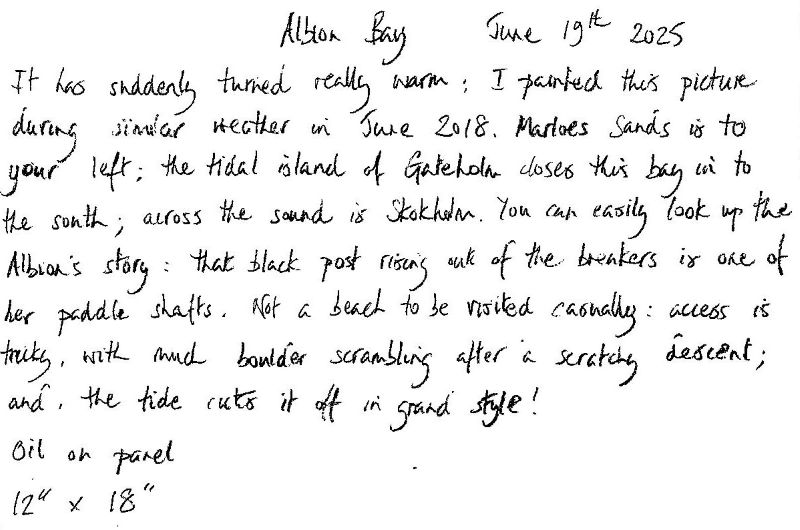 Albion Bay June 19th 2025
It has suddenly turned really warm; I painted this picture
during similar weather in June 2018. Marloes Sands is to
your left; the tidal island of Gateholm closes this bay in to
the south; across the sound is Skokholm. You can easily look up the
Albion's story: that black post rising out of the breakers is one of
her paddle shafts. Not a beach to be visited casually: access is
tricky, with much boulder scrambling after a scratchy descent;
and, the tide cuts it off in grand style!
Oil on panel
12" x 18"